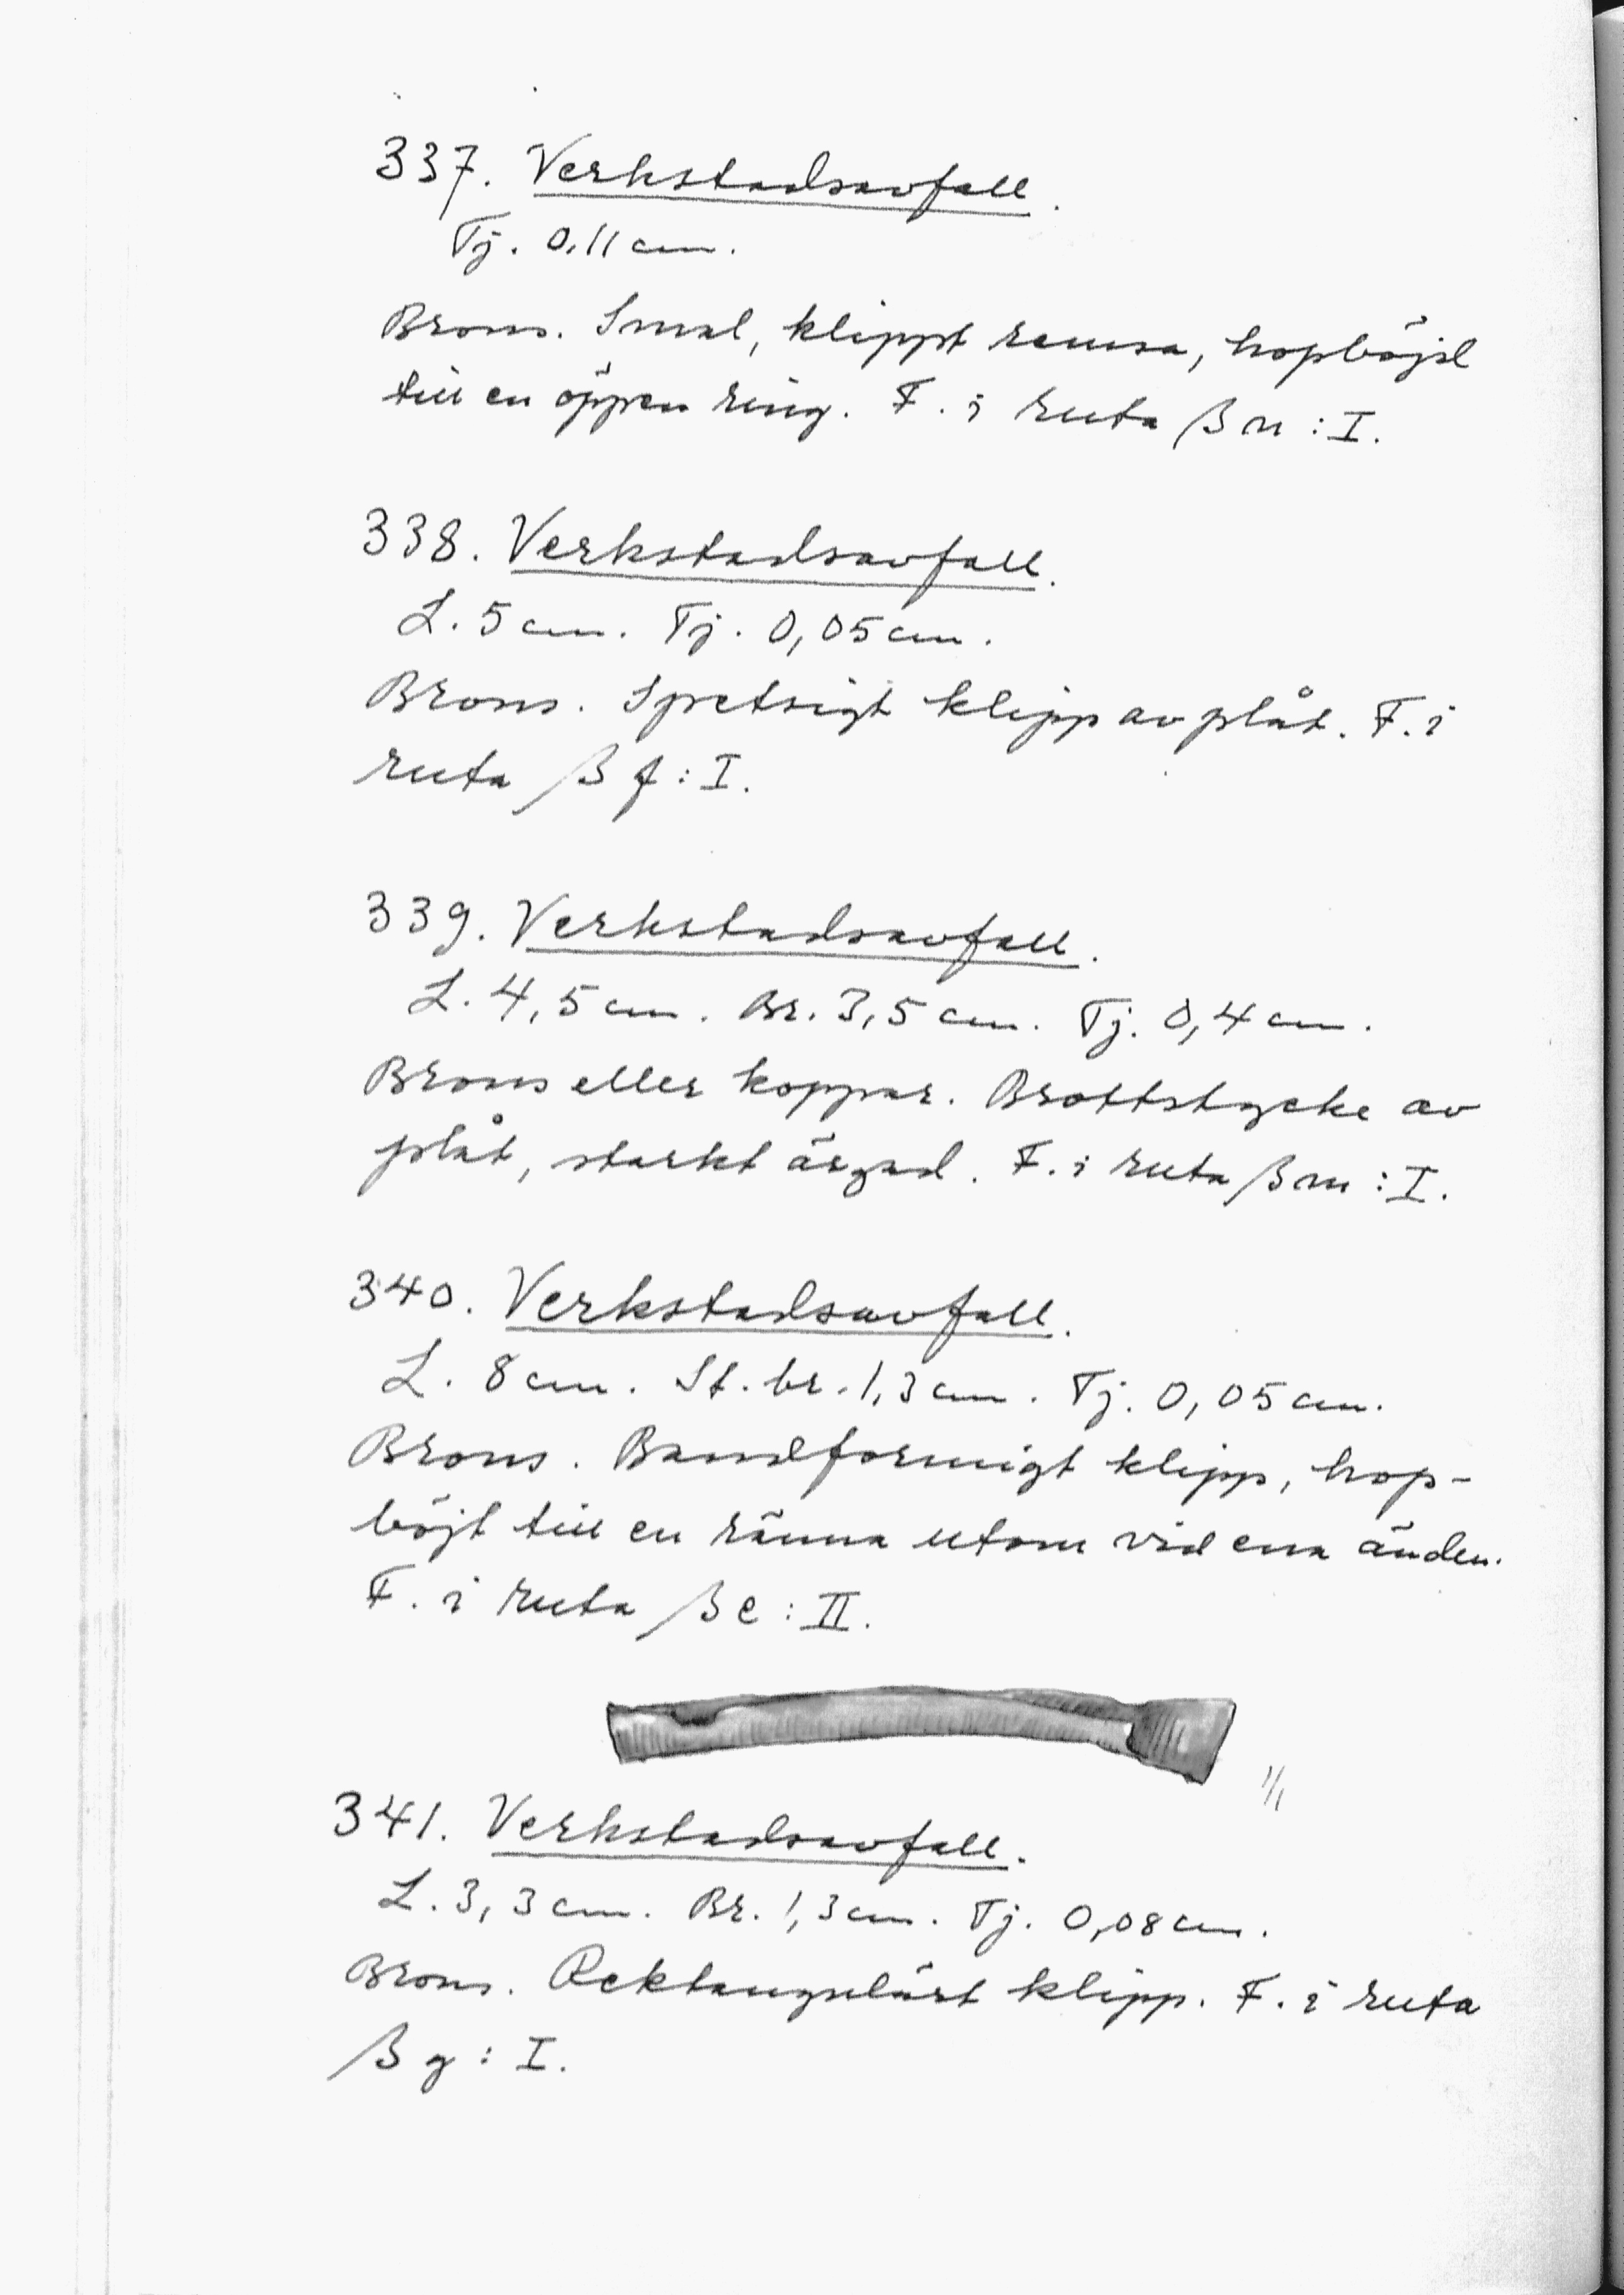 337. Verkstadsavfall.
Tj. 0,11 cm.
Brons. Smal, klippt remsa, hopböjd
till en öppen ring. F. i ruta βn : I.
338. Verkstadsavfall.
L. 5 cm. Tj. 0,05 cm.
Brons. Spetsigt klipp av plåt. F. i
ruta β f : I.
339. Verkstadsavfall.
L. 4,5 cm. Br. 3,5 cm. Tj. 0,4 cm.
Brons eller koppar. Brottstycke av
plåt, starkt ärgad. F. i ruta βm : I.
340. Verkstadsavfall.
L. 8 cm. St. br. 1,3 cm. Tj. 0,05 cm.
Brons. Bandformigt klipp, hop-
böjt till en ränna utom vid ena änden.
F. i ruta β e : II.
1/1
341. Verkstadsavfall.
L. 3,3 cm. Br. 1,3 cm. Tj. 0,08 cm.
Brons. Rektangulärt klipp. F. i ruta
β g : I.